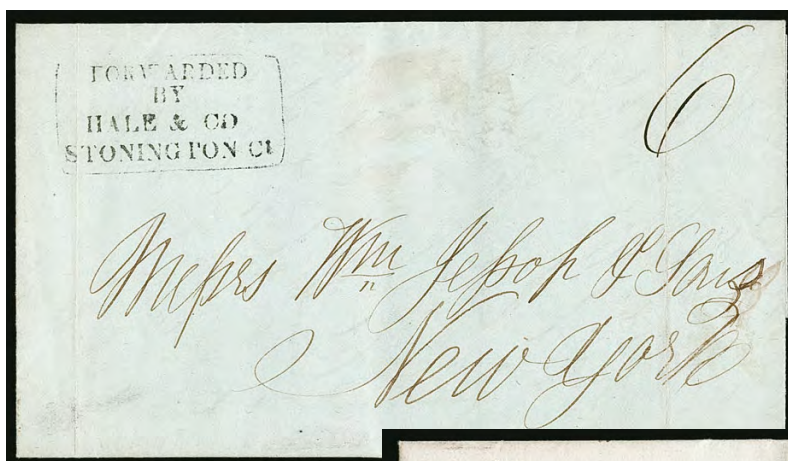 FORWARDED
BY
HALE & CO
STONINGTON Ct
6
Messrs Wm Jessop & Sons
New York